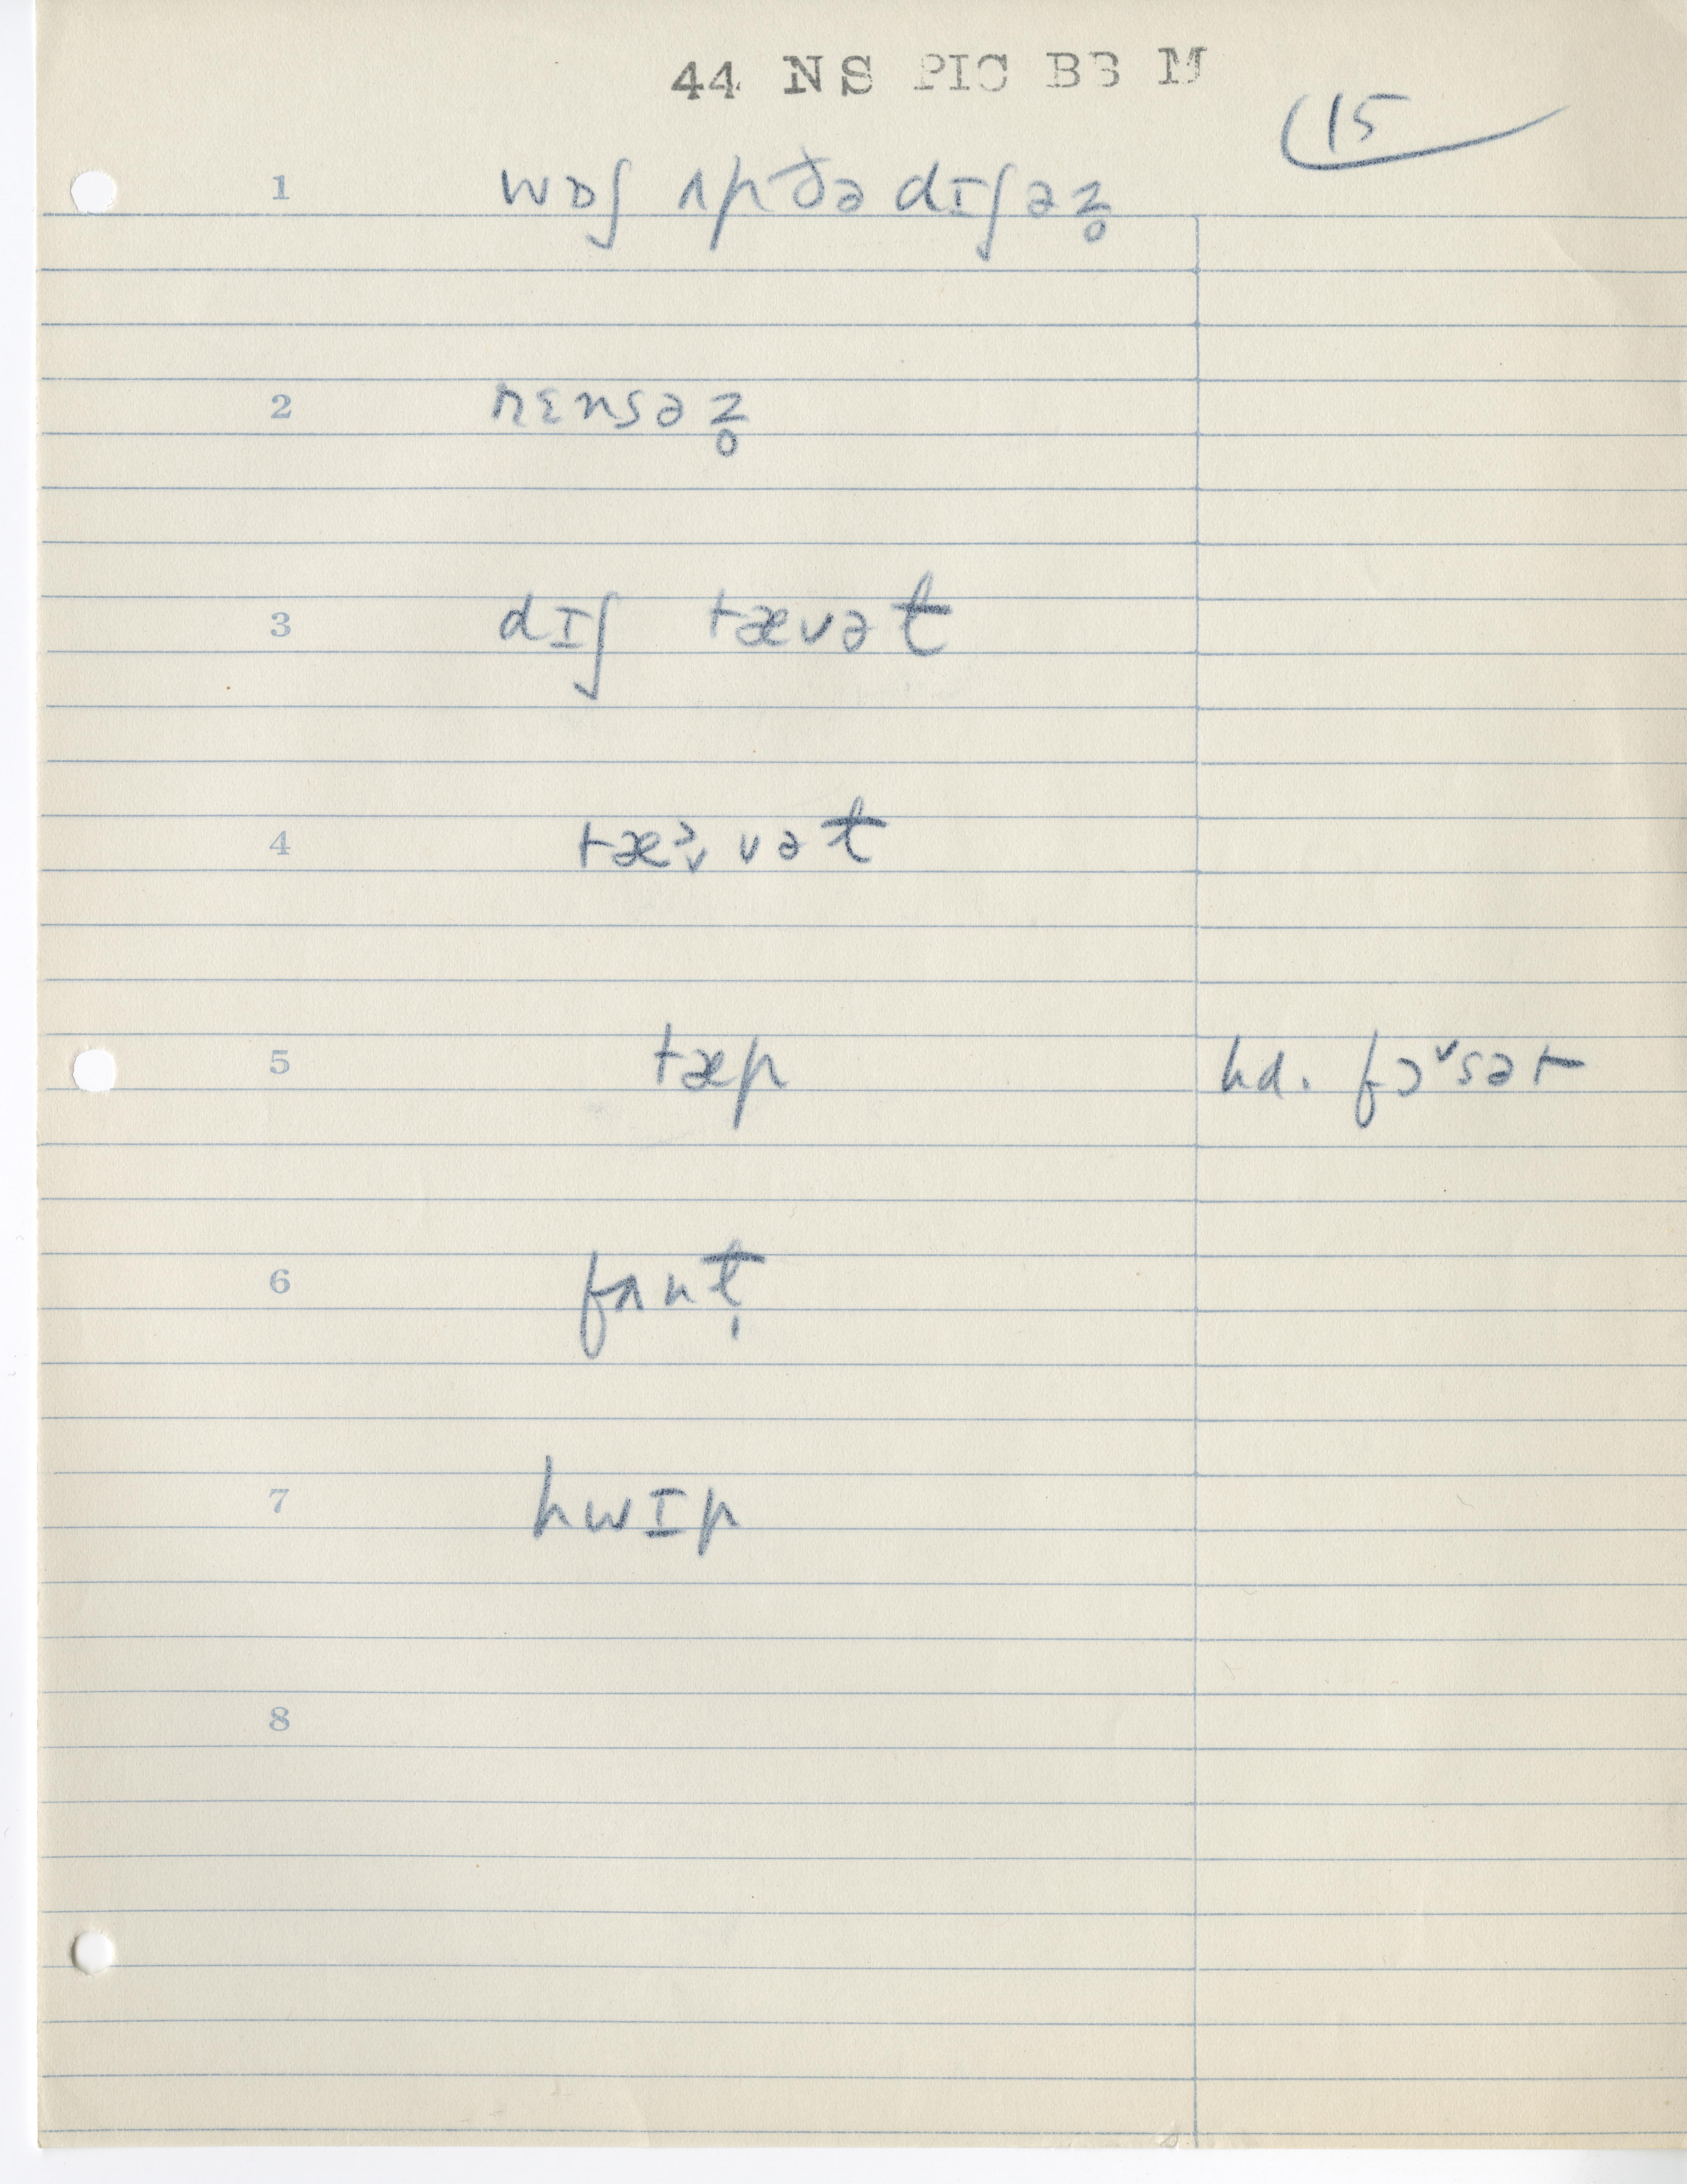 44 NS PIC BB M
15
1 wɒʃ ʌp ðə dɪʃəz̥
2 rɛnsəz̥
3 dɪʃ tævət̶
4 tæ˃˅vət̶
5 tæp hd. fɔ˅sət
6 fʌnt̶̩
7 hwɪp
8